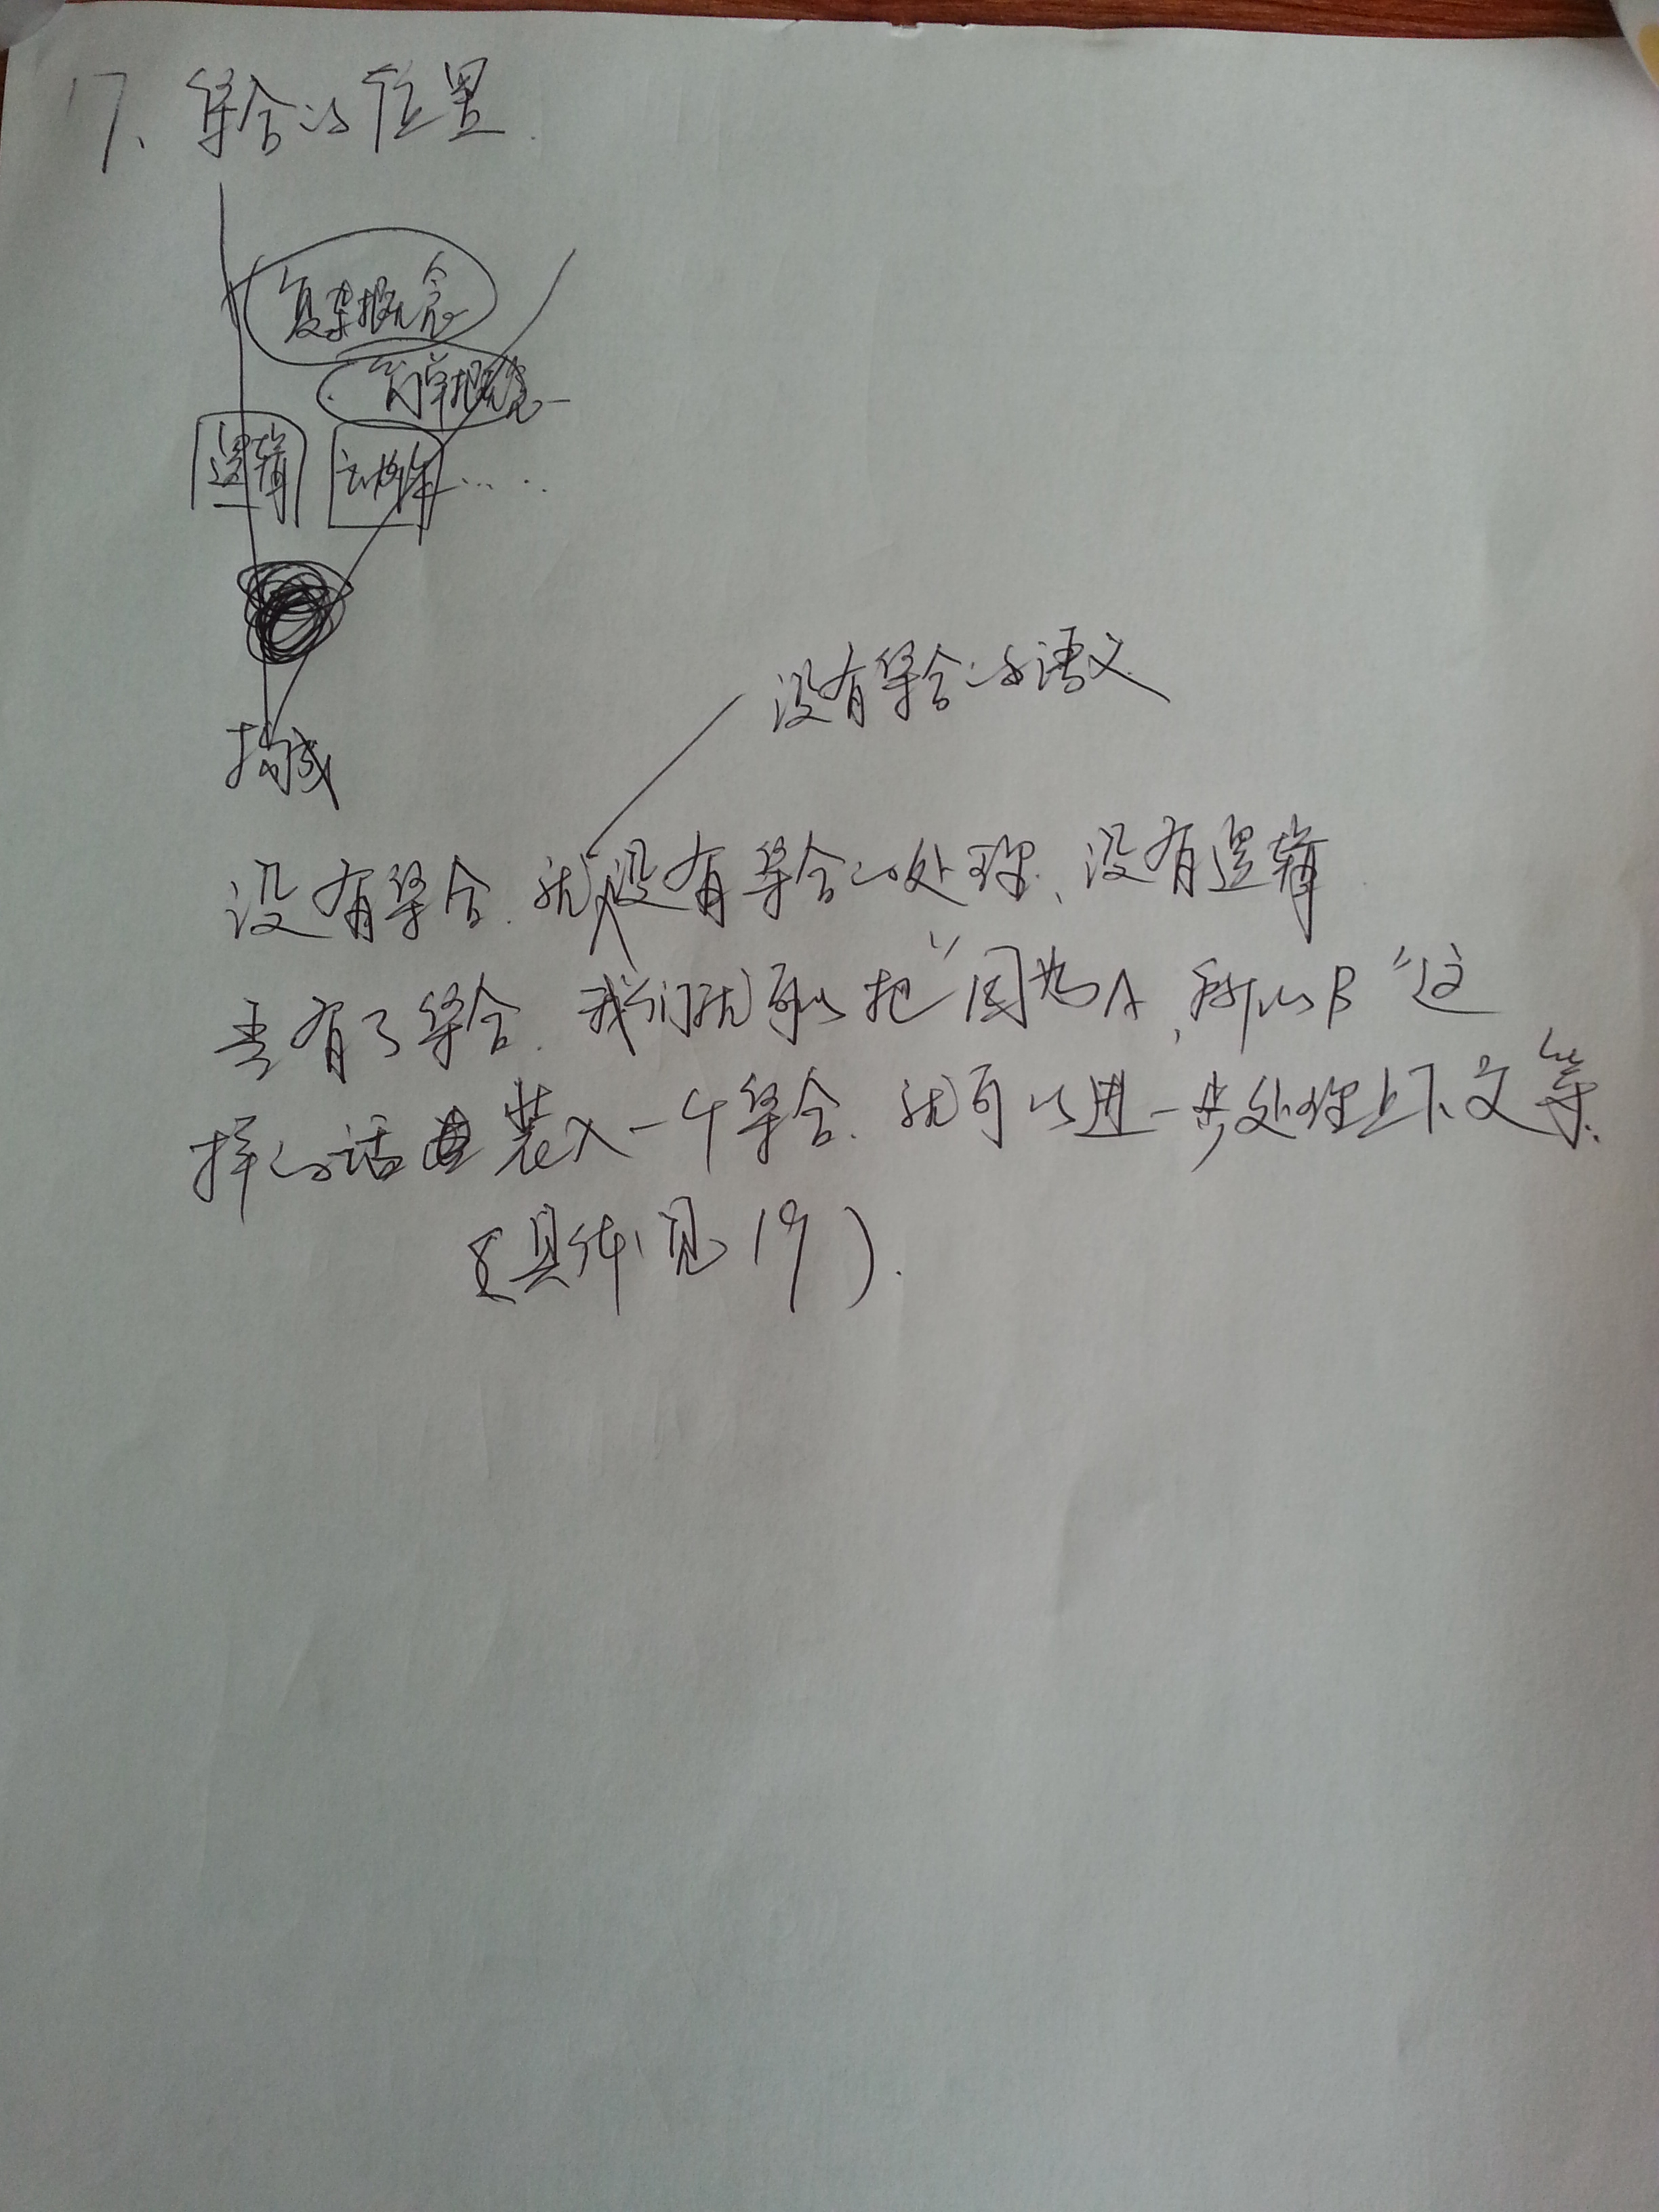 17、集合的位置.
复杂概念
简单概念
逻辑
……
构成
没有集合的语义
没有集合.就没有集合的处理、没有逻辑
有了集合.我们就可以把“因为A,所以B”这
样的话装入一个集合.就可以进一步处理上下文等.
(具体见19).